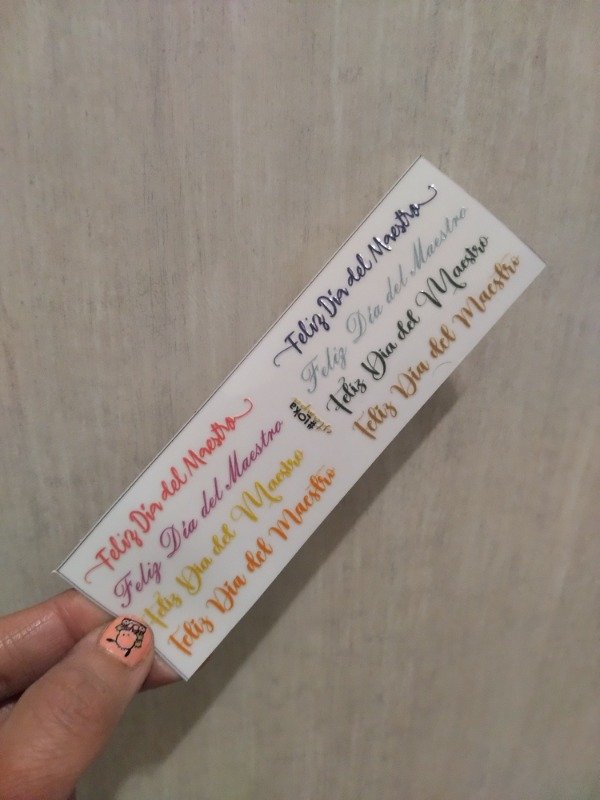 Feliz Día del Maestro
Feliz Día del Maestro
Feliz Día del Maestro
Feliz Día del Maestro
#ioka
Feliz Día del Maestro
Feliz Día del Maestro
Feliz Día del Maestro
Feliz Día del Maestro